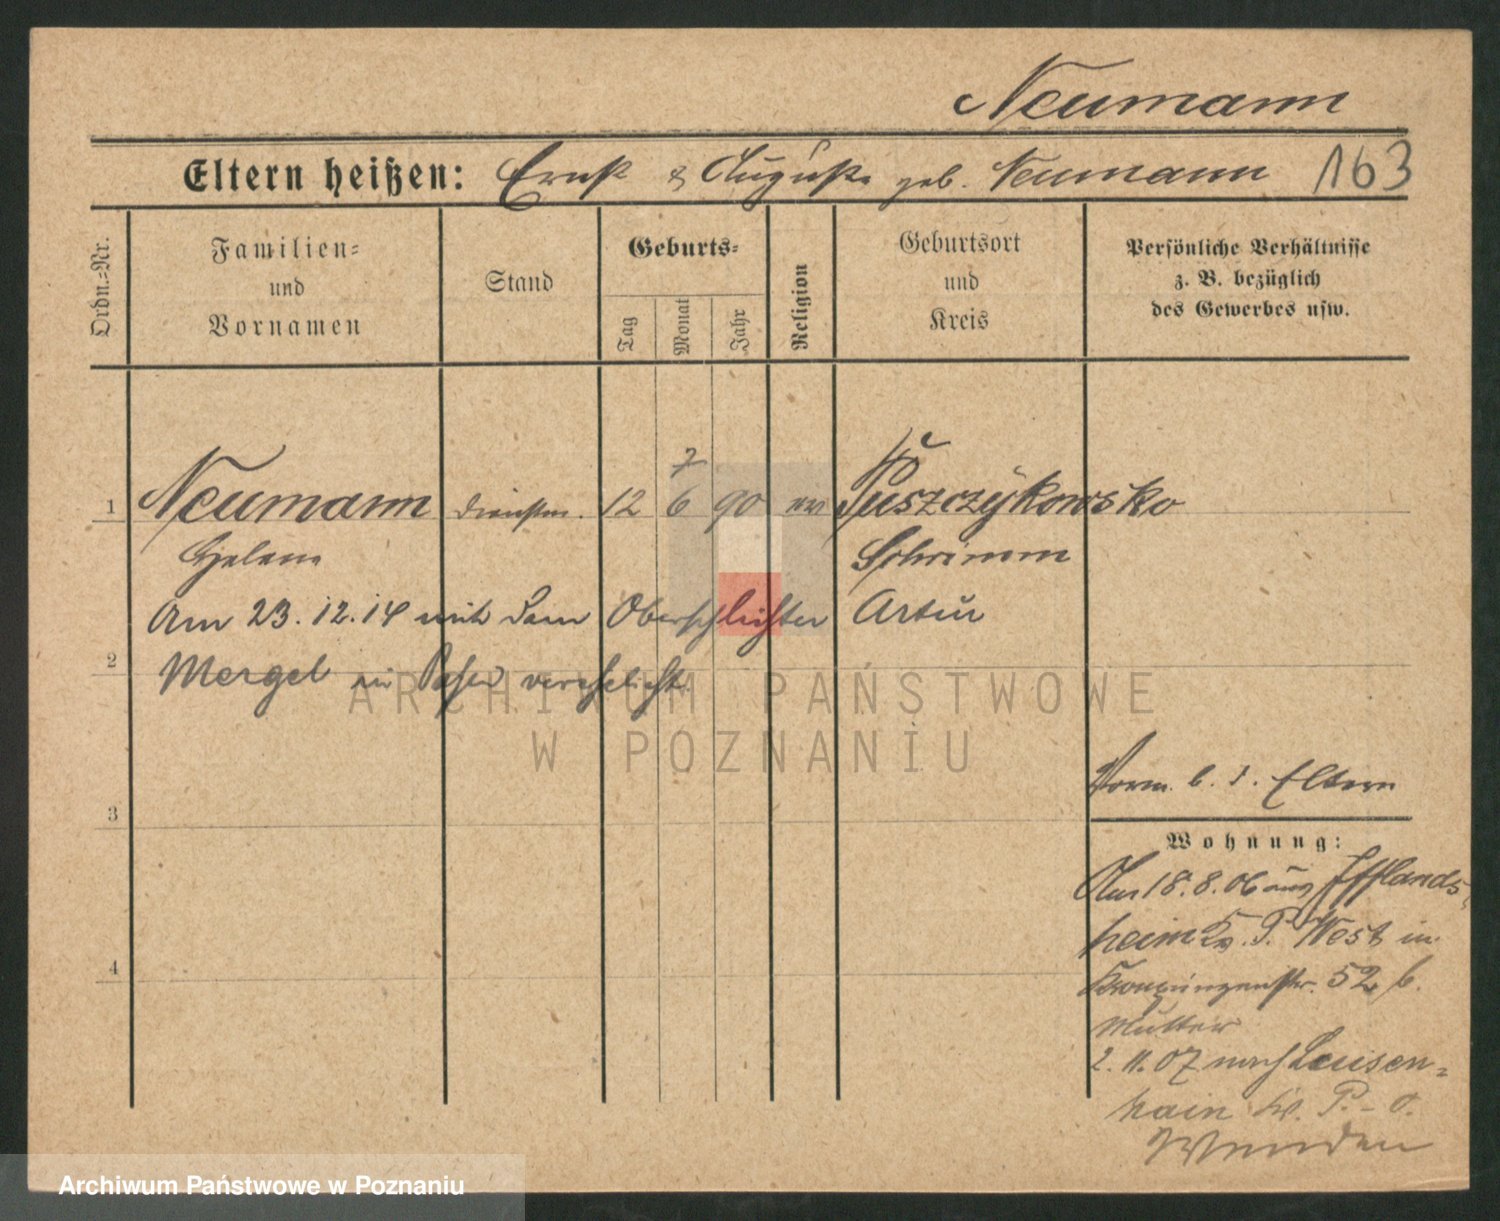 Neumann
Eltern heißen: Ernst & Auguste geb. Neumann 163
Ordn.=Nr.
Familien=
und
Vornamen
Stand
Geburts=
Tag
Monat
Jahr
Religion
Geburtsort
und
Kreis
Persönliche Verhältnisse
z. B. bezüglich
des Gewerbes usw.
7
1 Neumann Dienstm. 12 6 90 ev Puszczykowsko
Helene Schrimm
Am 23.12.14 mit dem Oberschlichter Artur
2 Mergel in Posen verehelicht
ARCHIWUM PAŃSTWOWE
W POZNANIU
3
4
Vorm. b. d. Eltern
Wohnung:
Am 18.8.06 aus Ifflands
heim Kr. P. West in
Kronprinzenstr. 52 b.
Mutter
2.11.07 nach Luisen=
hain Kr. P.-O.
Archiwum Państwowe w Poznaniu